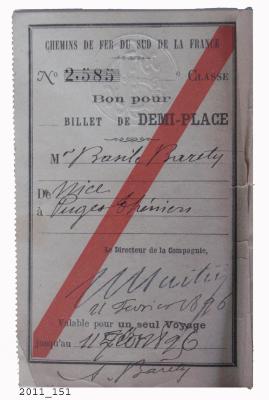 CHEMINS DE FER DU SUD DE LA FRANCE
N° 2.585 ° CLASSE
Bon pour
BILLET DE DEMI-PLACE
Mr Basile Barety
De Nice
à Puget-Théniers
Le Directeur de la Compagnie,
11 Fevrier 1896
Valable pour un seul Voyage
jusqu'au 11 1896
A. Barety
2011_151